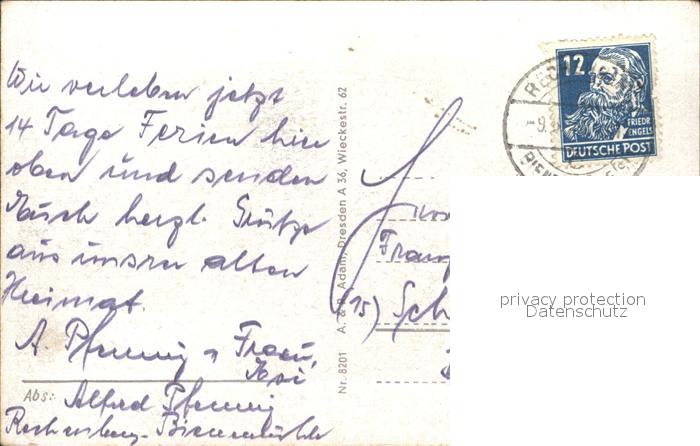 Wir verleben jetzt
14 Tage Ferien hier
oben und senden
Euch herzl. Grüße
aus unsrer alten
Heimat.
A. Pfennig u Frau,
Abs: Alfred Pfennig
Rechenberg-Bienenmühle
Nr. 8201 A. & R. Adam, Dresden A 36, Wieckestr. 62
12
FRIEDR
ENGELS
DEUTSCHE POST
Frau
(15) Sch
privacy protection
Datenschutz